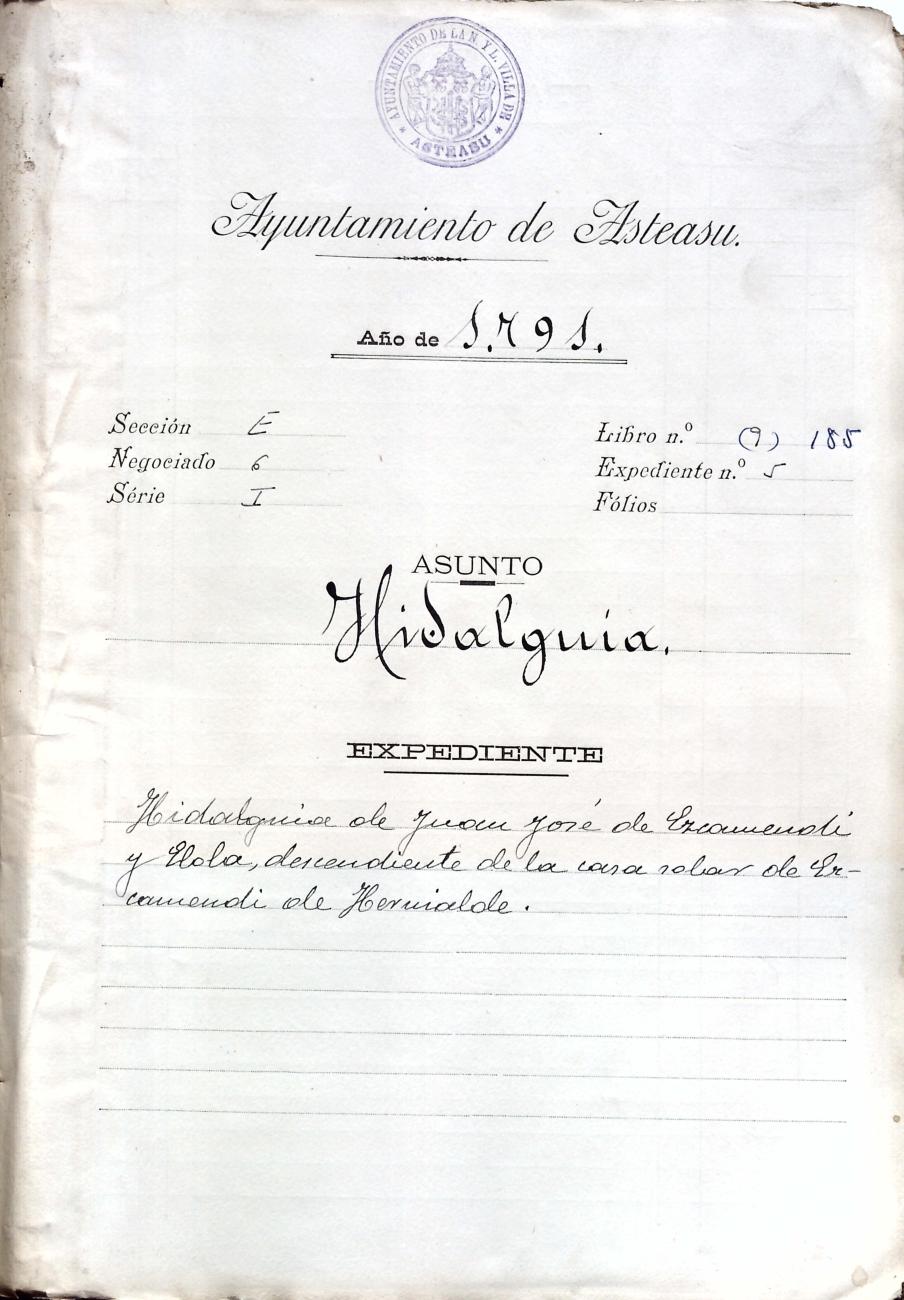 AYUNTAMIENTO DE LA N. Y L. VILLA DE
* ASTEASU *
Ayuntamiento de Asteasu.
Año de 1.791.
Sección E
Libro n.º (9) 185
Negociado 6
Expediente n.º 5
Série I
Fólios
ASUNTO
Hidalguia.
EXPEDIENTE
Hidalguia de Juan José de Ercamendi
y Elola, descendiente de la casa solar de Er-
camendi de Hernialde.